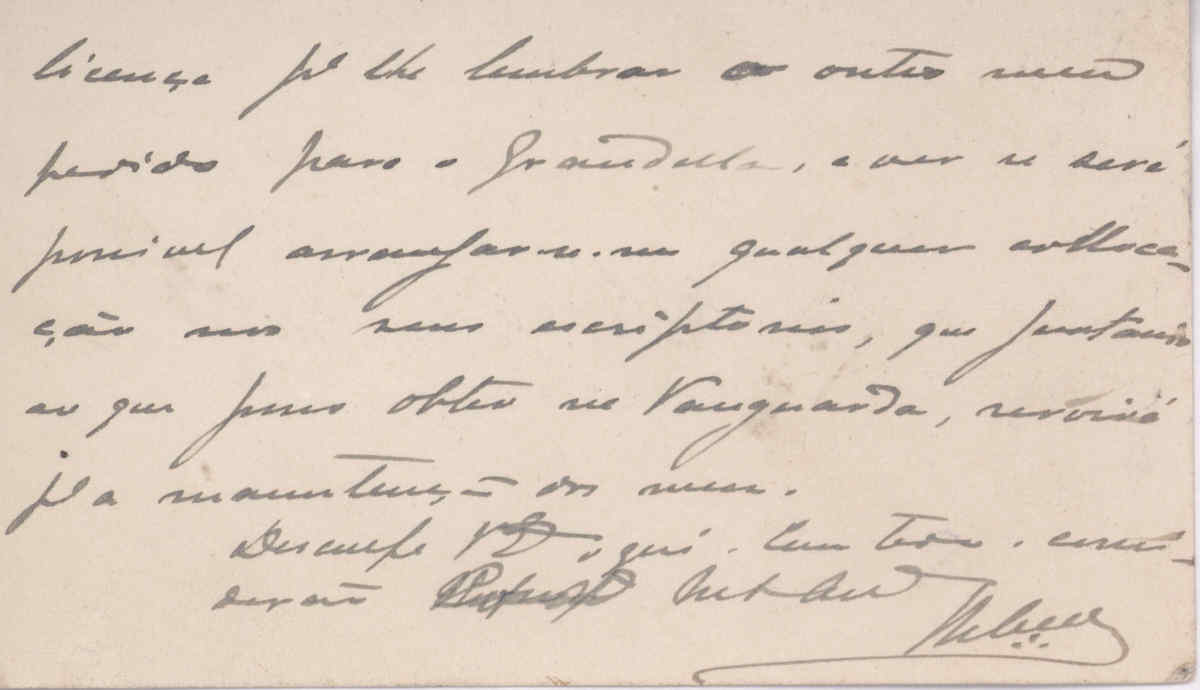 licença pª lhe lembrar o outro meu
pedido para o Grandella, a ver se será
possivel arranjar-se-me qualquer colloca-
ção nos seus escriptorios, que juntando
ao que posso obter na Vanguarda, servirá
pª a manutenção dos meus.
Desculpe V. Exª, e com toda a consi-
deração